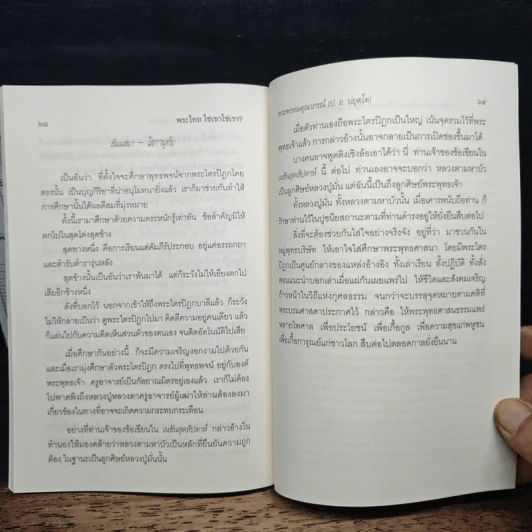 ๖๘
พระไทย ใช่เขาใช่เรา?
เป็นอันว่า ที่ตั้งใจจะศึกษาพุทธพจน์จากพระไตรปิฎกโดย
ตรงนั้น เป็นบุญกิริยาที่น่าอนุโมทนายิ่งแล้ว เราก็มาช่วยกันทำให้
การศึกษานั้นได้ผลดีสมที่มุ่งหมาย
ทั้งนี้เรามาศึกษาด้วยความตระหนักรู้เท่าทัน ข้อสำคัญมิให้
ตกไปในสุดโต่งสุดข้าง
สุดทางหนึ่ง คือการเรียนแต่คัมภีร์ประกอบ อยู่แค่อรรถกถา
และตำรับตำรารุ่นหลัง
สุดข้างนั้นเป็นอันว่าเราพ้นมาได้ แต่ก็ระวังไม่ให้เอียงตกไป
เสียอีกข้างหนึ่ง
ดังที่บอกไว้ นอกจากเข้าให้ถึงพระไตรปิฎกบาลีแล้ว ก็ระวัง
ไม่ให้กลายเป็นว่า ดูพระไตรปิฎกไปมา ติดตีความอยู่คนเดียว แล้ว
ก็แล่นไปกับความคิดเห็นส่วนตัวของตนเอง จนติดอัตโนมัติไปเสีย
เมื่อศึกษากันอย่างนี้ ก็จะมีความเจริญงอกงามไปด้วยกัน
และเมื่อเรามุ่งศึกษาตัวพระไตรปิฎก ตรงไปที่พุทธพจน์ อยู่กับองค์
พระพุทธเจ้า ครูอาจารย์เป็นกัลยาณมิตรอยู่เองแล้ว เราก็ไม่ต้อง
ไปพาดพิงถึงหลวงปู่หลวงตาครูอาจารย์ผู้เฒ่าให้ท่านต้องลงมา
เกี่ยวข้องในทางที่อาจจะเกิดความกระทบกระเทือน
อย่างที่ท่านเจ้าของข้อเขียนใน เนชั่นสุดสัปดาห์ กล่าวอ้างใน
ทำนองให้มองคล้ายว่าหลวงตามหาบัวเป็นหลักที่ยืนยันความถูก
ต้อง ในฐานะเป็นลูกศิษย์หลวงปู่มั่นนั้น
พระพรหมคุณาภรณ์ (ป. อ. ปยุตฺโต)
๖๙
เมื่อตัวท่านเองถือพระไตรปิฎกเป็นใหญ่ เน้นจุดรวมไว้ที่พระ
พุทธเจ้าแล้ว การกล่าวอ้างนั้นอาจกลายเป็นการเปิดช่องขึ้นมาได้
บางคนอาจพูดติงเชิงล้อเอาได้ว่า นี่ ท่านเจ้าของข้อเขียนใน
เนชั่นสุดสัปดาห์ นี้ ต่อไป ท่านเองอาจจะบอกว่า หลวงตามหาบัว
เป็นลูกศิษย์หลวงปู่มั่น แต่ฉันนี้เป็นถึงลูกศิษย์พระพุทธเจ้า
ทั้งหลวงปู่มั่น ทั้งหลวงตามหาบัวนั้น เมื่อเคารพนับถือท่าน ก็
รักษาท่านไว้ในปูชนียสถานะตามที่ท่านดำรงอยู่ให้ยั่งยืนสืบต่อไป
สิ่งที่จะต้องช่วยกันใส่ใจอย่างจริงจัง อยู่ที่ว่า มาชวนกันใน
หมู่พุทธบริษัท ให้เอาใจใส่ศึกษาพระพุทธศาสนา โดยมีพระไตร
ปิฎกเป็นศูนย์กลางของแหล่งอ้างอิง ทั้งเล่าเรียน ทั้งปฏิบัติ ทั้งสั่ง
สอนแนะนำบอกเล่าเผื่อแผ่กันเผยแพร่ไป ให้ชีวิตและสังคมเจริญ
ก้าวหน้าในวิถีแห่งกุศลธรรม จนกว่าจะบรรลุจุดหมายตามคติที่
พระบรมศาสดาประกาศไว้ กล่าวคือ ให้พระพุทธศาสนาแพร่
หลายไพศาล เพื่อประโยชน์ เพื่อเกื้อกูล เพื่อความสุขแก่พหูชน
เพื่อเกื้อการุณย์แก่ชาวโลก สืบต่อไปตลอดกาลยั่งยืนนาน